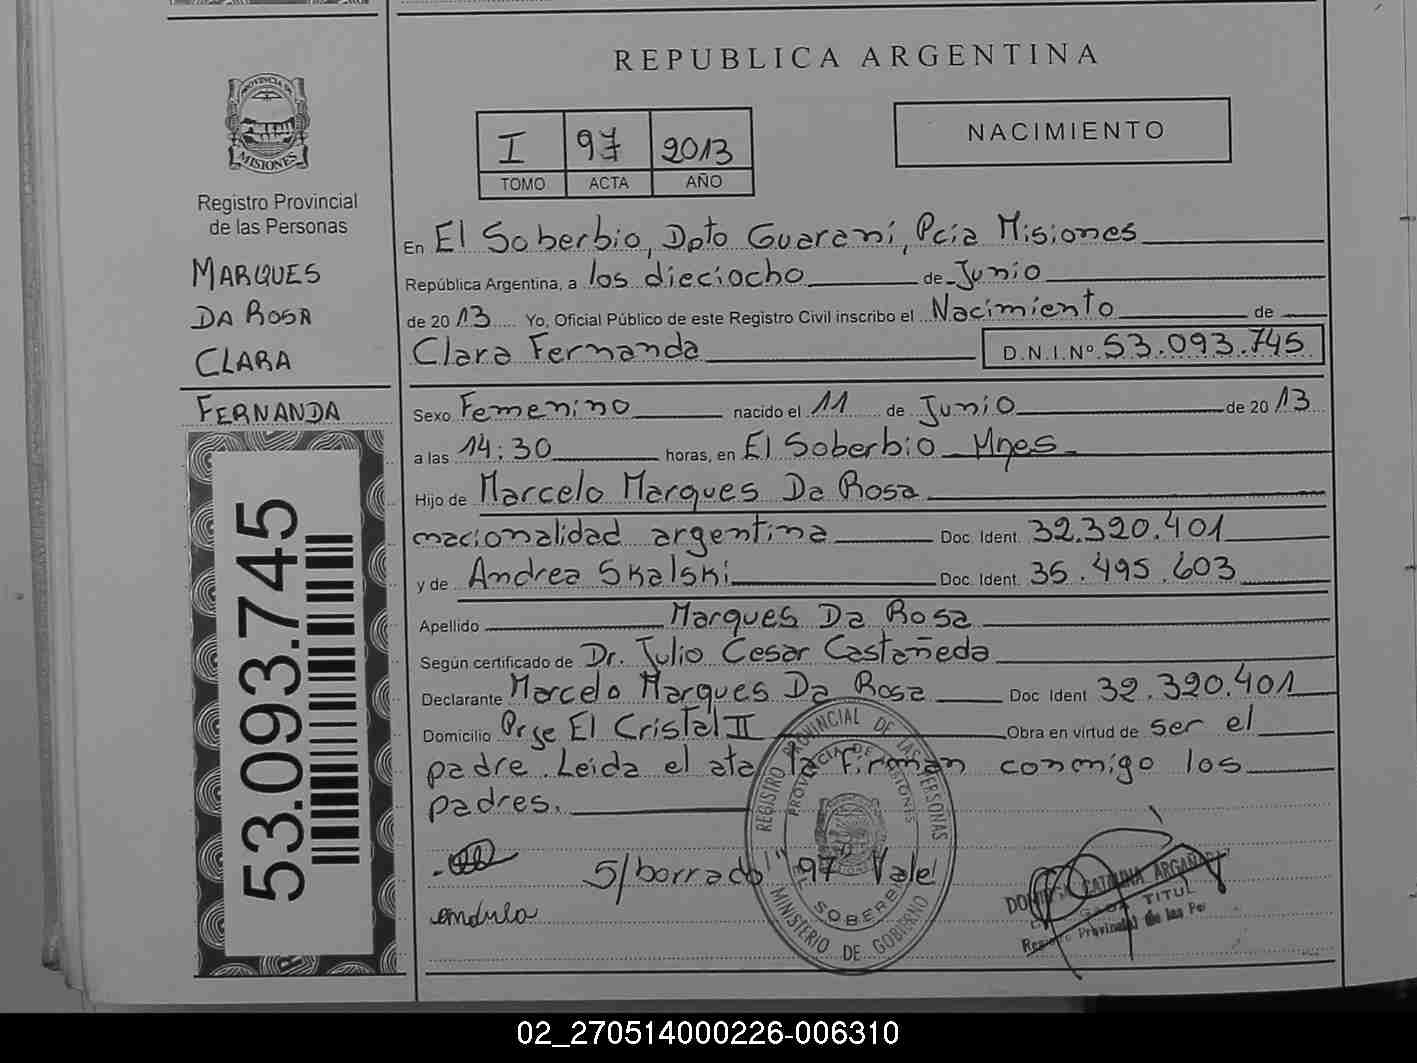 REPUBLICA ARGENTINA
PROVINCIA DE
MISIONES
Registro Provincial
de las Personas
MARQUES
DA ROSA
CLARA
FERNANDA
53.093.745
I 97 2013
TOMO ACTA AÑO
NACIMIENTO
En El Soberbio, Dpto Guaraní, Pcia Misiones
República Argentina, a los dieciocho de Junio
de 2013 Yo, Oficial Público de este Registro Civil inscribo el Nacimiento de
Clara Fernanda D.N.I.Nº 53.093.745
Sexo Femenino nacido el 11 de Junio de 2013
a las 14:30 horas, en El Soberbio Mnes
Hijo de Marcelo Marques Da Rosa
nacionalidad argentina Doc. Ident. 32.320.401
y de Andrea Skalski Doc. Ident. 35.495.603
Apellido Marques Da Rosa
Según certificado de Dr. Julio Cesar Castañeda
Declarante Marcelo Marques Da Rosa Doc Ident 32.320.401
Domicilio Prje El Cristal II Obra en virtud de ser el
padre. Leida el ata la firman conmigo los
padres.
S/borrado "97" Vale
REGISTRO PROVINCIAL DE LAS PERSONAS
PROVINCIA DE MISIONES
EL SOBERBIO
MINISTERIO DE GOBIERNO
CATALINA
TITUL
Provincial de las Pe
02_270514000226-006310